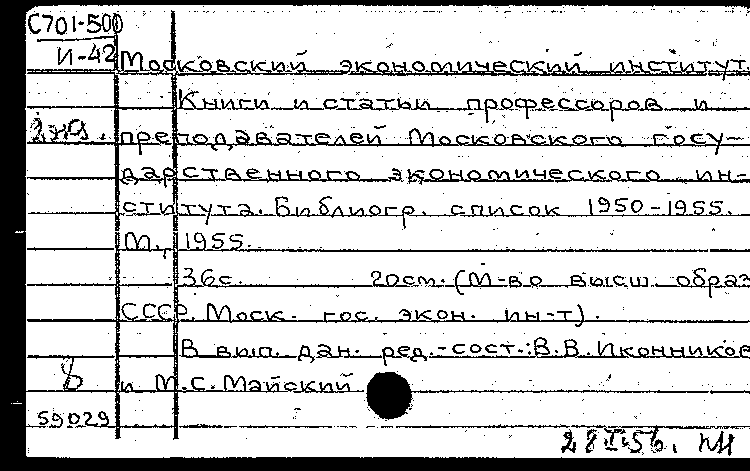 С701-500
И-42 Московский экономический институт.
Книги и статьи профессоров и
2 экз. преподавателей Московского госу-
дарственного экономического ин-
ститута. Библиогр. список 1950-1955.
М., 1955.
36с. 20см. (М-во высш. образ
СССР. Моск. гос. экон. ин-т).
В вып. дан. ред.-сост.: В.В.Иконников
8 и М.С.Майский
59029